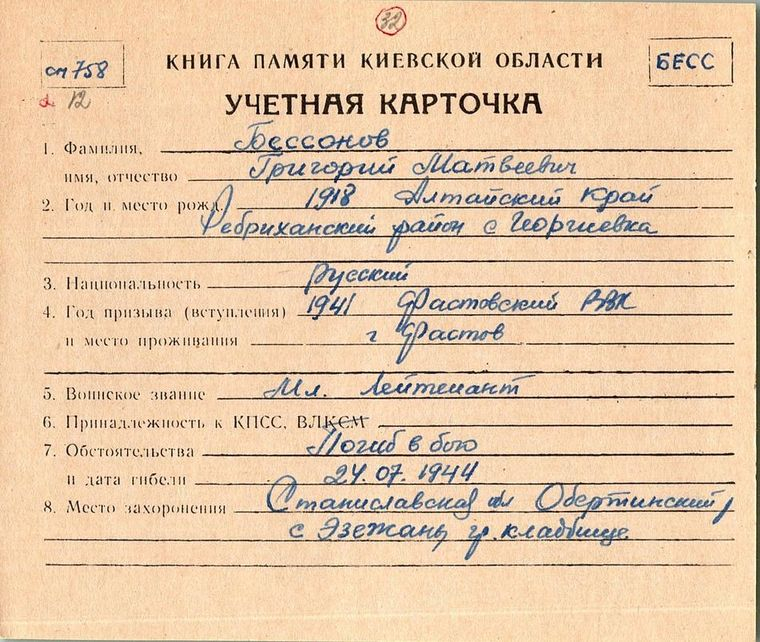 32
ст 758
КНИГА ПАМЯТИ КИЕВСКОЙ ОБЛАСТИ
БЕСС
12
УЧЕТНАЯ КАРТОЧКА
1. Фамилия, Бессонов
имя, отчество Григорий Матвеевич
2. Год и место рожд. 1918 Алтайский край
Ребриханский район с Георгиевка
3. Национальность русский
4. Год призыва (вступления) 1941 Фастовский РВК
и место проживания г Фастов
5. Воинское звание Мл. Лейтенант
6. Принадлежность к КПСС, ВЛКСМ
7. Обстоятельства Погиб в бою
и дата гибели 24.07.1944
8. Место захоронения Станиславская обл Обертинский р
с Эзежаны гр. кладбище